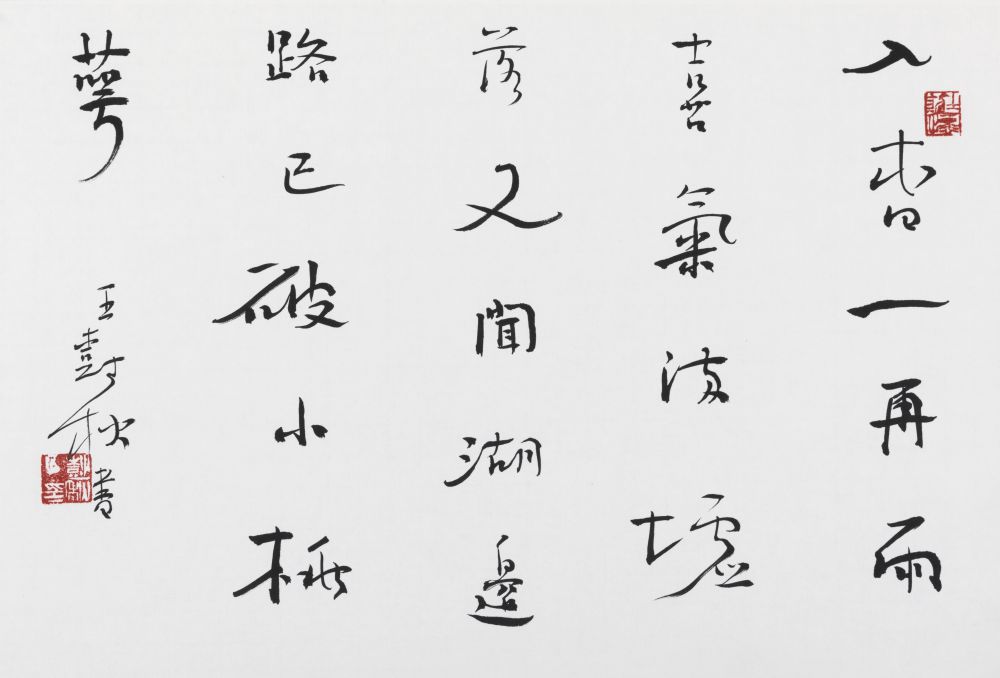 入春一再雨
喜氣滿墟
落又聞湖邊
路已破小桃
萼
王秋書